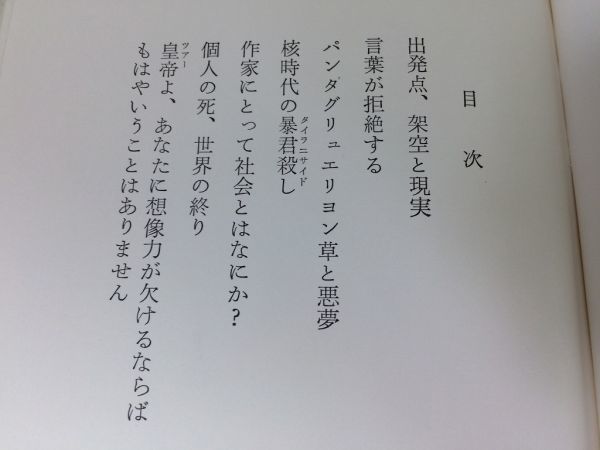 目次
出発点、架空と現実
言葉が拒絶する
パンダグリュエリヨン草と悪夢
核時代の暴君殺し
タイラニサイド
作家にとって社会とはなにか?
個人の死、世界の終り
皇帝よ、あなたに想像力が欠けるならば
ツアー
もはやいうことはありません